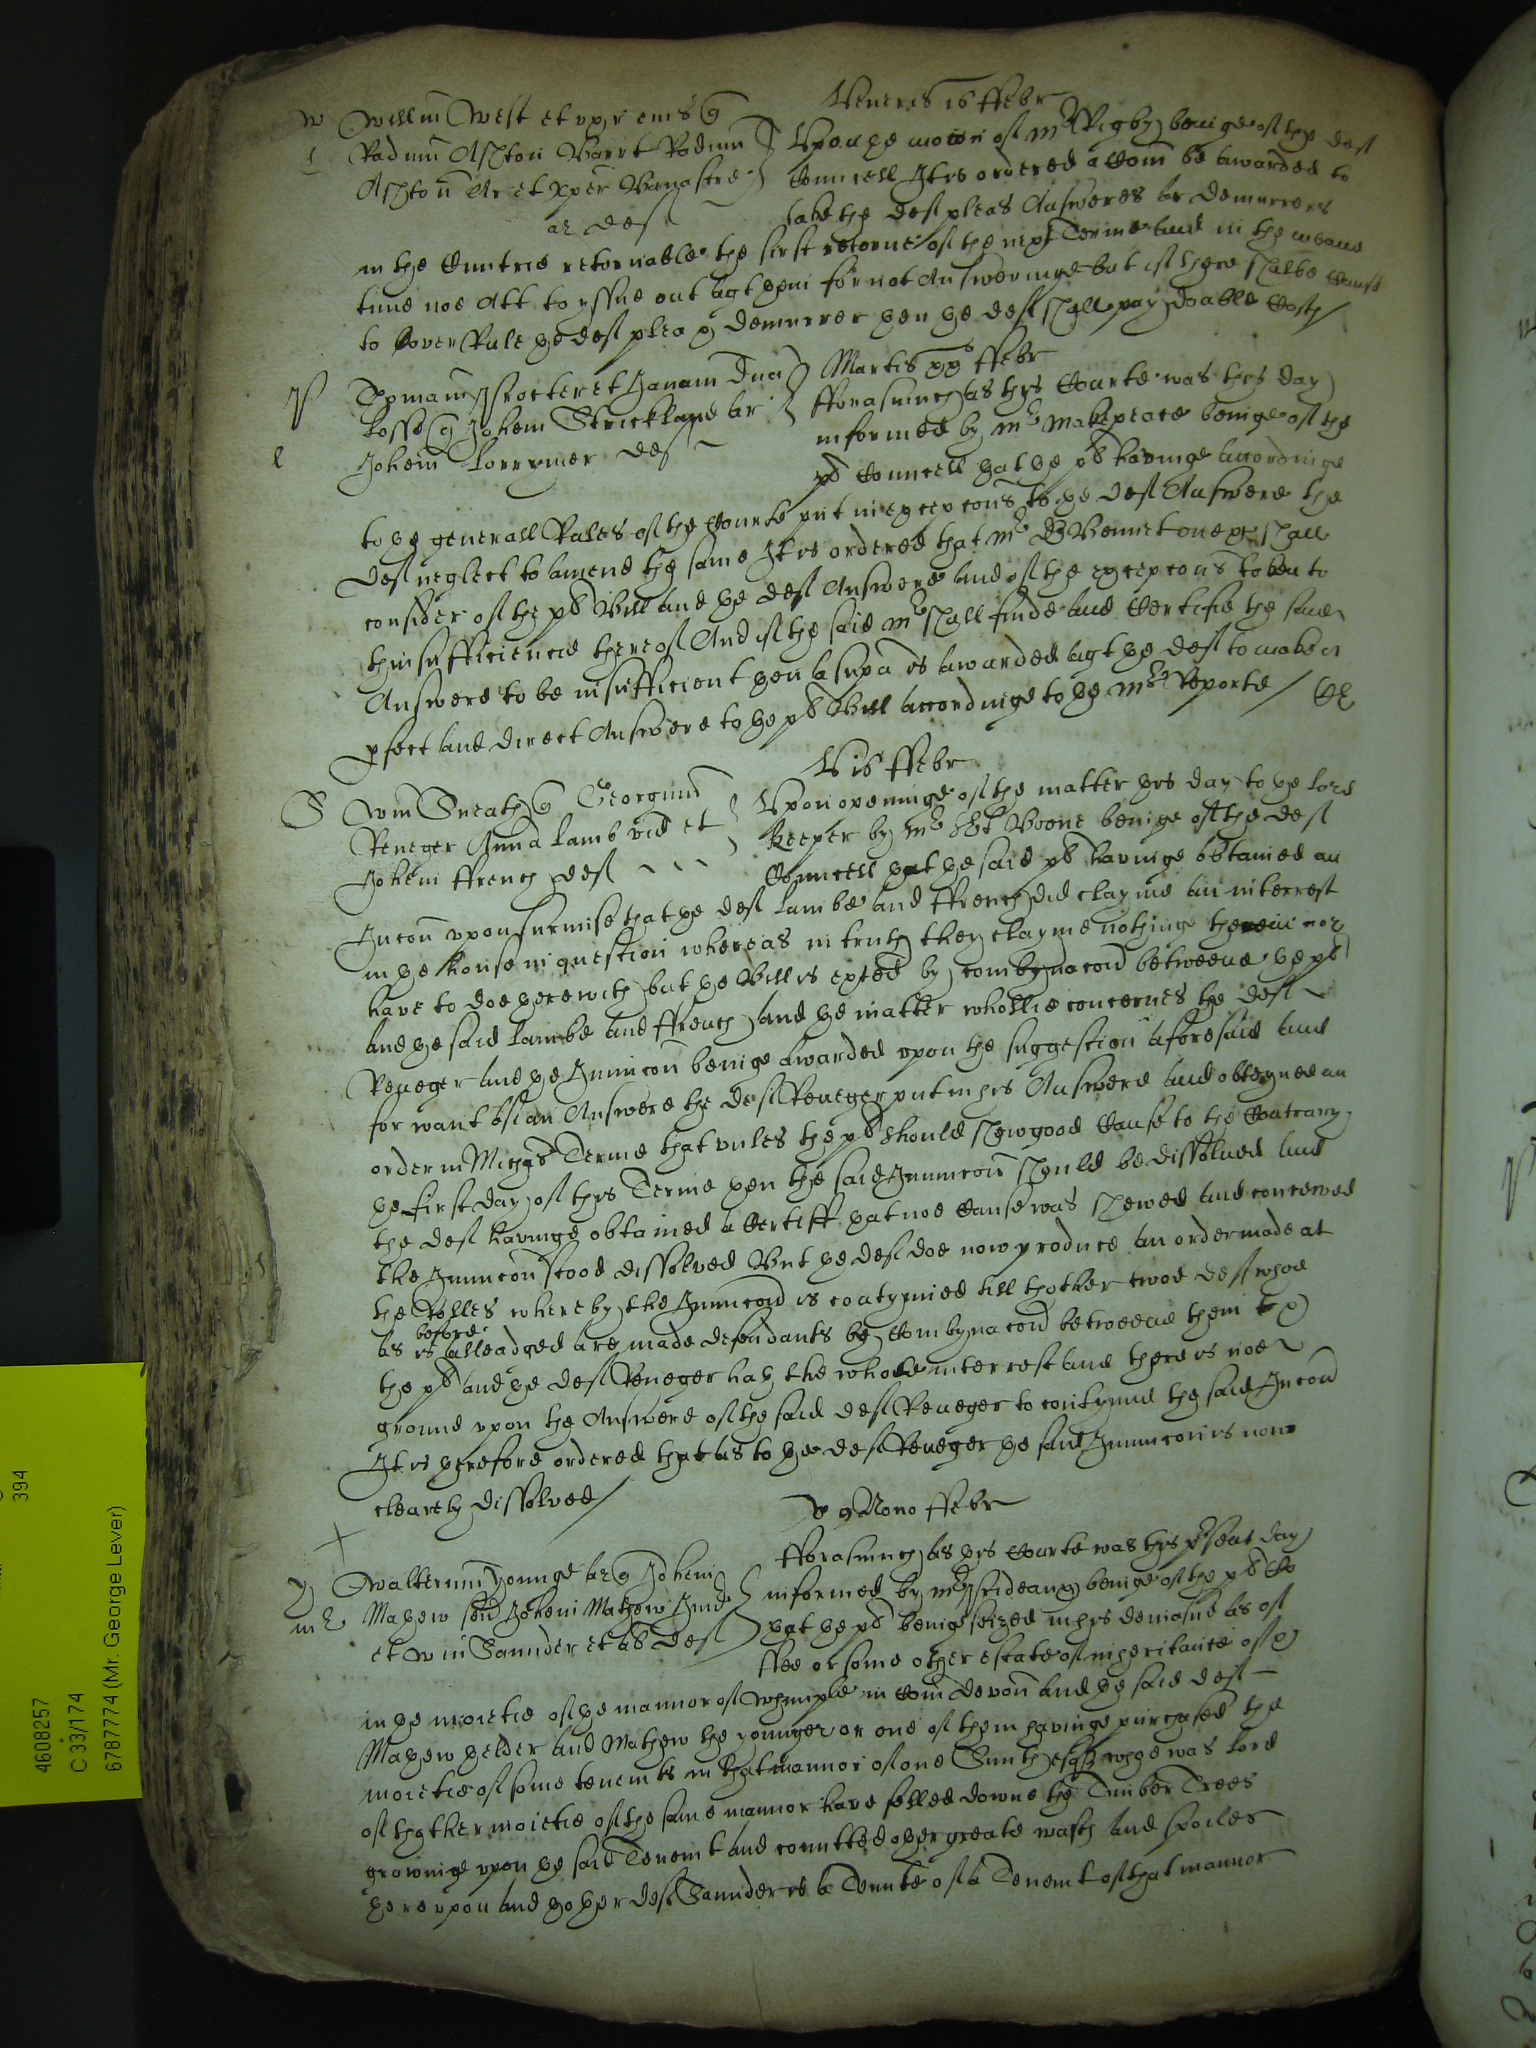 Veneris 16 ffebr
W Willm West et uxor eius q
Radum Ashton Barrt Radum
Ashton Ar et Xpofer Banastre
ar def
Upon the mocon of Mr Rigby beinge of the def
Councell It is ordered a Com be awarded to
take the def pleas Answeres or demurrers
in the Cuntrie retornable the first retorne of the next Terme and in the meane
time noe Att to yssue out agt them for not Answeringe but if there shalbe cause
to over Rule the def plea or demurrer then the def shall pay double Costs
Martis xx ffebr
Thomam et Janam
Josse q Johem Strickland ar
Johem Lorrymer def
fforasmuch as this Courte was this day
informed by Mr Makepeace beinge of the
pl Councell that the pl havinge accordinge
to the generall Rules of the Courte put in excepcons to the def Answere the
def neglect to amend the same It is ordered that Mr Dr Bennet one &c shall
consider of the pl Bill and the def Answere and of the excepcons taken to
thinsufficiencie thereof And if the said Mr shall finde and Certifie the said
Answere to be insufficient then a supa is awarded agt the def to make a
pfect and direct Answere to the pl Bill accordinge to the Mrs Reporte /
V 16 ffebr
S Wm Sneath q Georgium
Reneger Anna Lamb vid et
Johem ffrench def
Upon openinge of the matter this day to the lord
keeper by Mr Sgt Boone beinge of the def
Councell that the said pl havinge obtained an
Iniuncon upon surmise that the def Lambe and ffrench did clayme an interrest
in the house in question whereas in truth they clayme nothinge therein nor
have to doe therewith but the Bill is exted by combynacon betweene the pl
and the said Lambe and ffrench and the matter whollie concernes the def
Reneger and the Iniuncon beinge awarded upon the suggestion aforesaid and
for want of an Answere the def Reneger put in his Answere and obteyned an
order in Michas Terme that unles the pl should shew good Cause to the Contrary
the first day of this Terme then the said Iniuncon should be dissolved and
the def havinge obtained a Certiff that noe Cause was shewed and conceived
the Iniuncon stood dissolved But the def doe now produce an order made at
the Rolles whereby the Iniuncon is contynued till thother twoe def whoe
before
as is alleadged are made defendants by Combynacon betweene them &
the pl and the def Reneger hath the whole interrest and there is noe
ground upon the Answere of the said def Reneger to contynue the said Iniuncon
It is therefore ordered that as to the def Reneger the said Iniuncon is now
clearely dissolved /
V Nono ffebr
Y Walterum Younge ar q Johem
Mathew sen Johem Mathew Jun
et Wm Saunder et al def
fforasmuch as this Courte was this psent day
informed by Mr beinge of the pl Co
that the pl beinge seized in his demasne as of
ffee or some other estate of inheritance of &
in the moietie of the mannor of Whimple in Com Devon and the said def
Mathew thelder and Mathew the younger or one of them havinge purchased the
moietie of some tenemts in that mannor of one Smith esqr whoe was lord
of thother moietie of the same mannor have felled downe the Timber Trees
growinge upon the said Tenemt and comitted other greate wasts and spoiles
there upon and thother def Saunder is a Tennte of a Tenemt of that mannor
394
4608257
C 33/174
6787774 (Mr. George Lever)